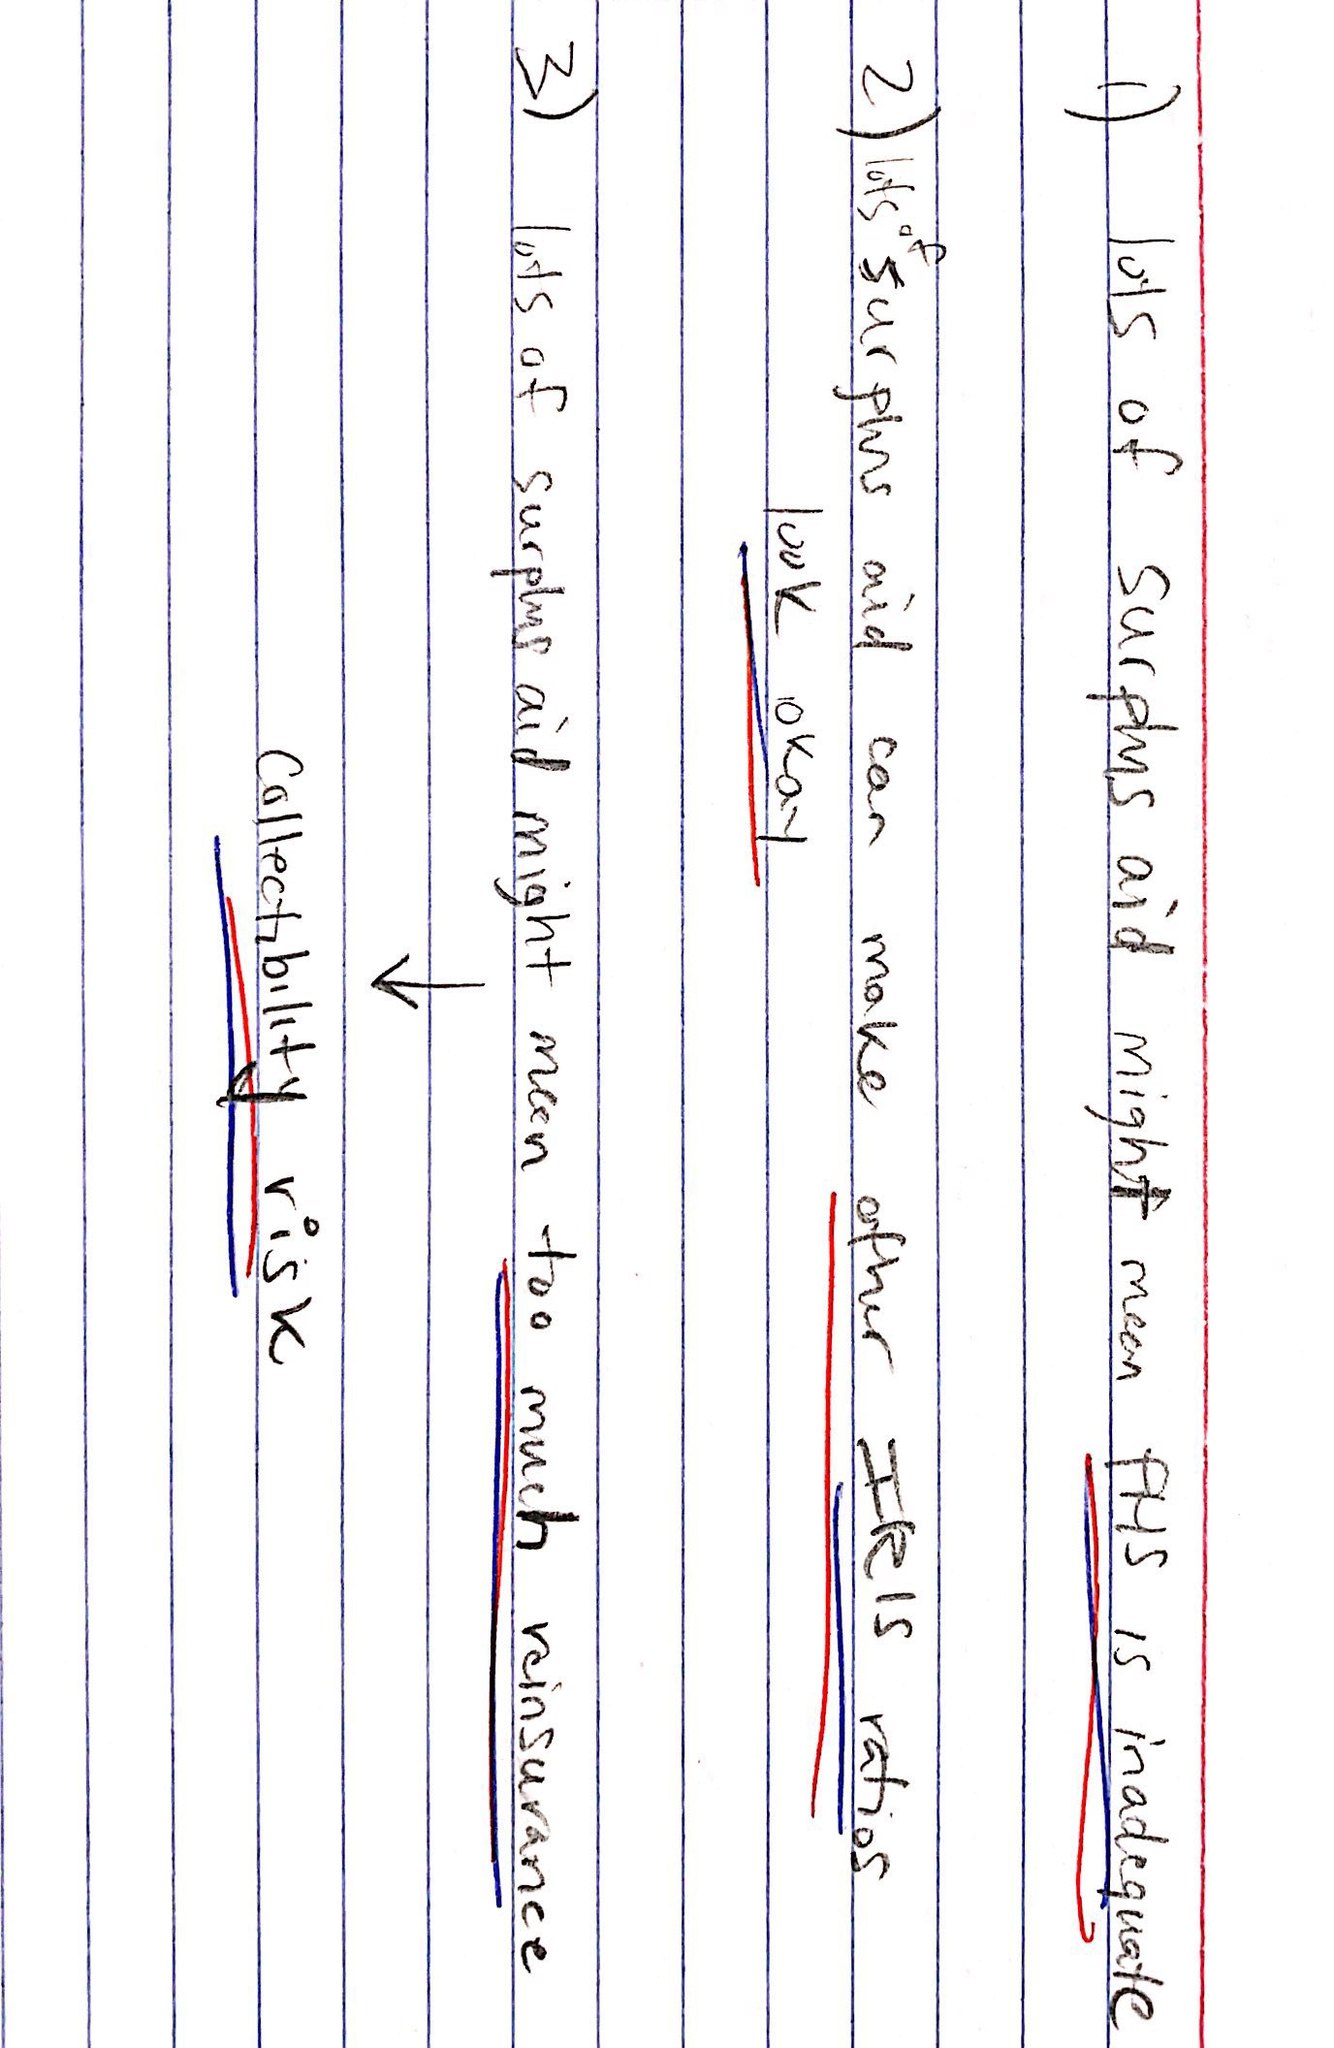 1) lots of surplus aid might mean PHS is inadequate
2) lots of surplus aid can make other IRIS ratios
look okay
3) lots of surplus aid might mean too much reinsurance
Collectibility risk